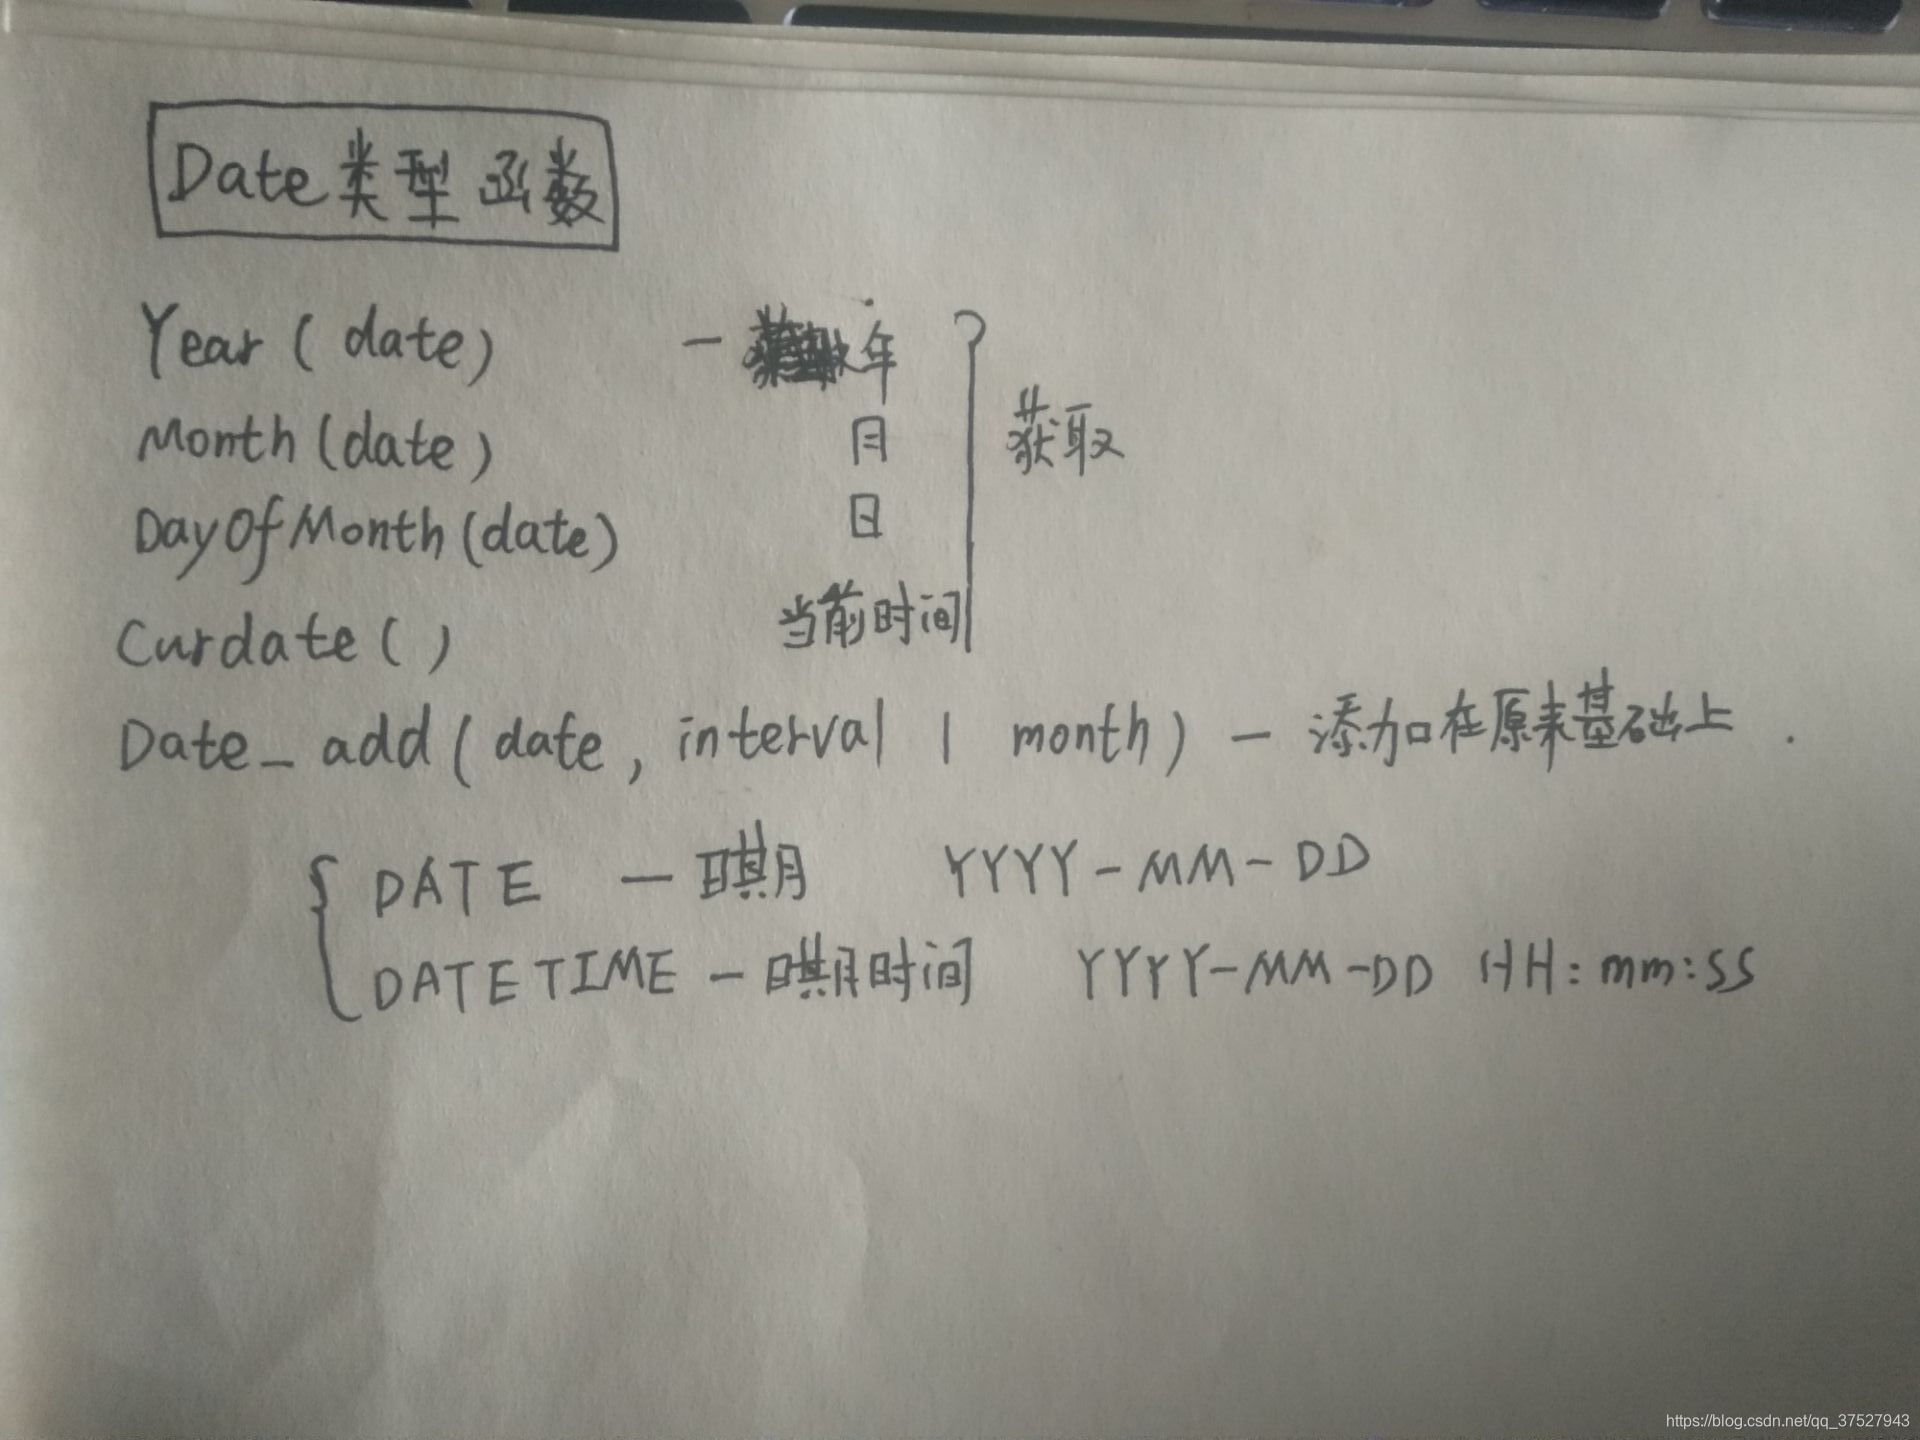 Date类型函数
Year(date) — 年
Month(date) 月
获取
DayOfMonth(date) 日
Curdate() 当前时间
Date_add(date, interval 1 month) — 添加在原来基础上.
DATE — 日期 YYYY-MM-DD
DATETIME — 日期时间 YYYY-MM-DD HH:mm:SS
https://blog.csdn.net/qq_37527943